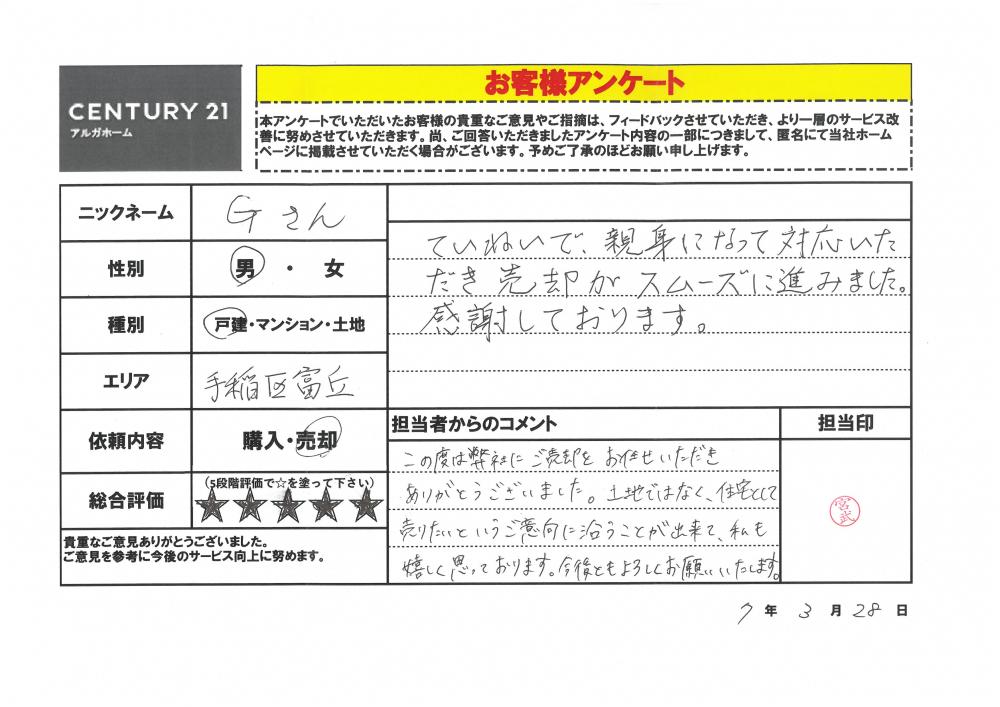 CENTURY 21
アルガホーム
お客様アンケート
本アンケートでいただいたお客様の貴重なご意見やご指摘は、フィードバックさせていただき、より一層のサービス改
善に努めさせていただきます。尚、ご回答いただきましたアンケート内容の一部につきまして、匿名にて当社ホーム
ページに掲載させていただく場合がございます。予めご了承のほどお願い申し上げます。
ニックネーム
Gさん
性別
男・女
種別
戸建・マンション・土地
エリア
手稲区富丘
依頼内容
購入・売却
総合評価
(5段階評価で☆を塗って下さい)
★★★★★
貴重なご意見ありがとうございました。
ご意見を参考に今後のサービス向上に努めます。
ていねいで、親身になって対応いた
だき売却がスムーズに進みました。
感謝しております。
担当者からのコメント
この度は弊社にご売却をお任せいただき
ありがとうございました。土地ではなく、住宅として
売りたいというご意向に沿うことが出来て、私も
嬉しく思っております。今後ともよろしくお願いいたします。
担当印
宮武
7年3月28日